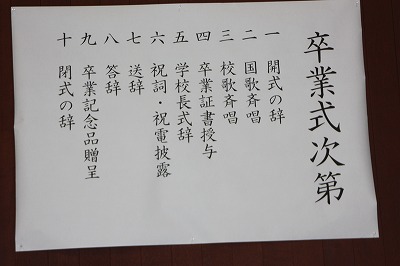 卒業式次第
一 開式の辞
二 国歌斉唱
三 校歌斉唱
四 卒業証書授与
五 学校長式辞
六 祝詞・祝電披露
七 送辞
八 答辞
九 卒業記念品贈呈
十 閉式の辞